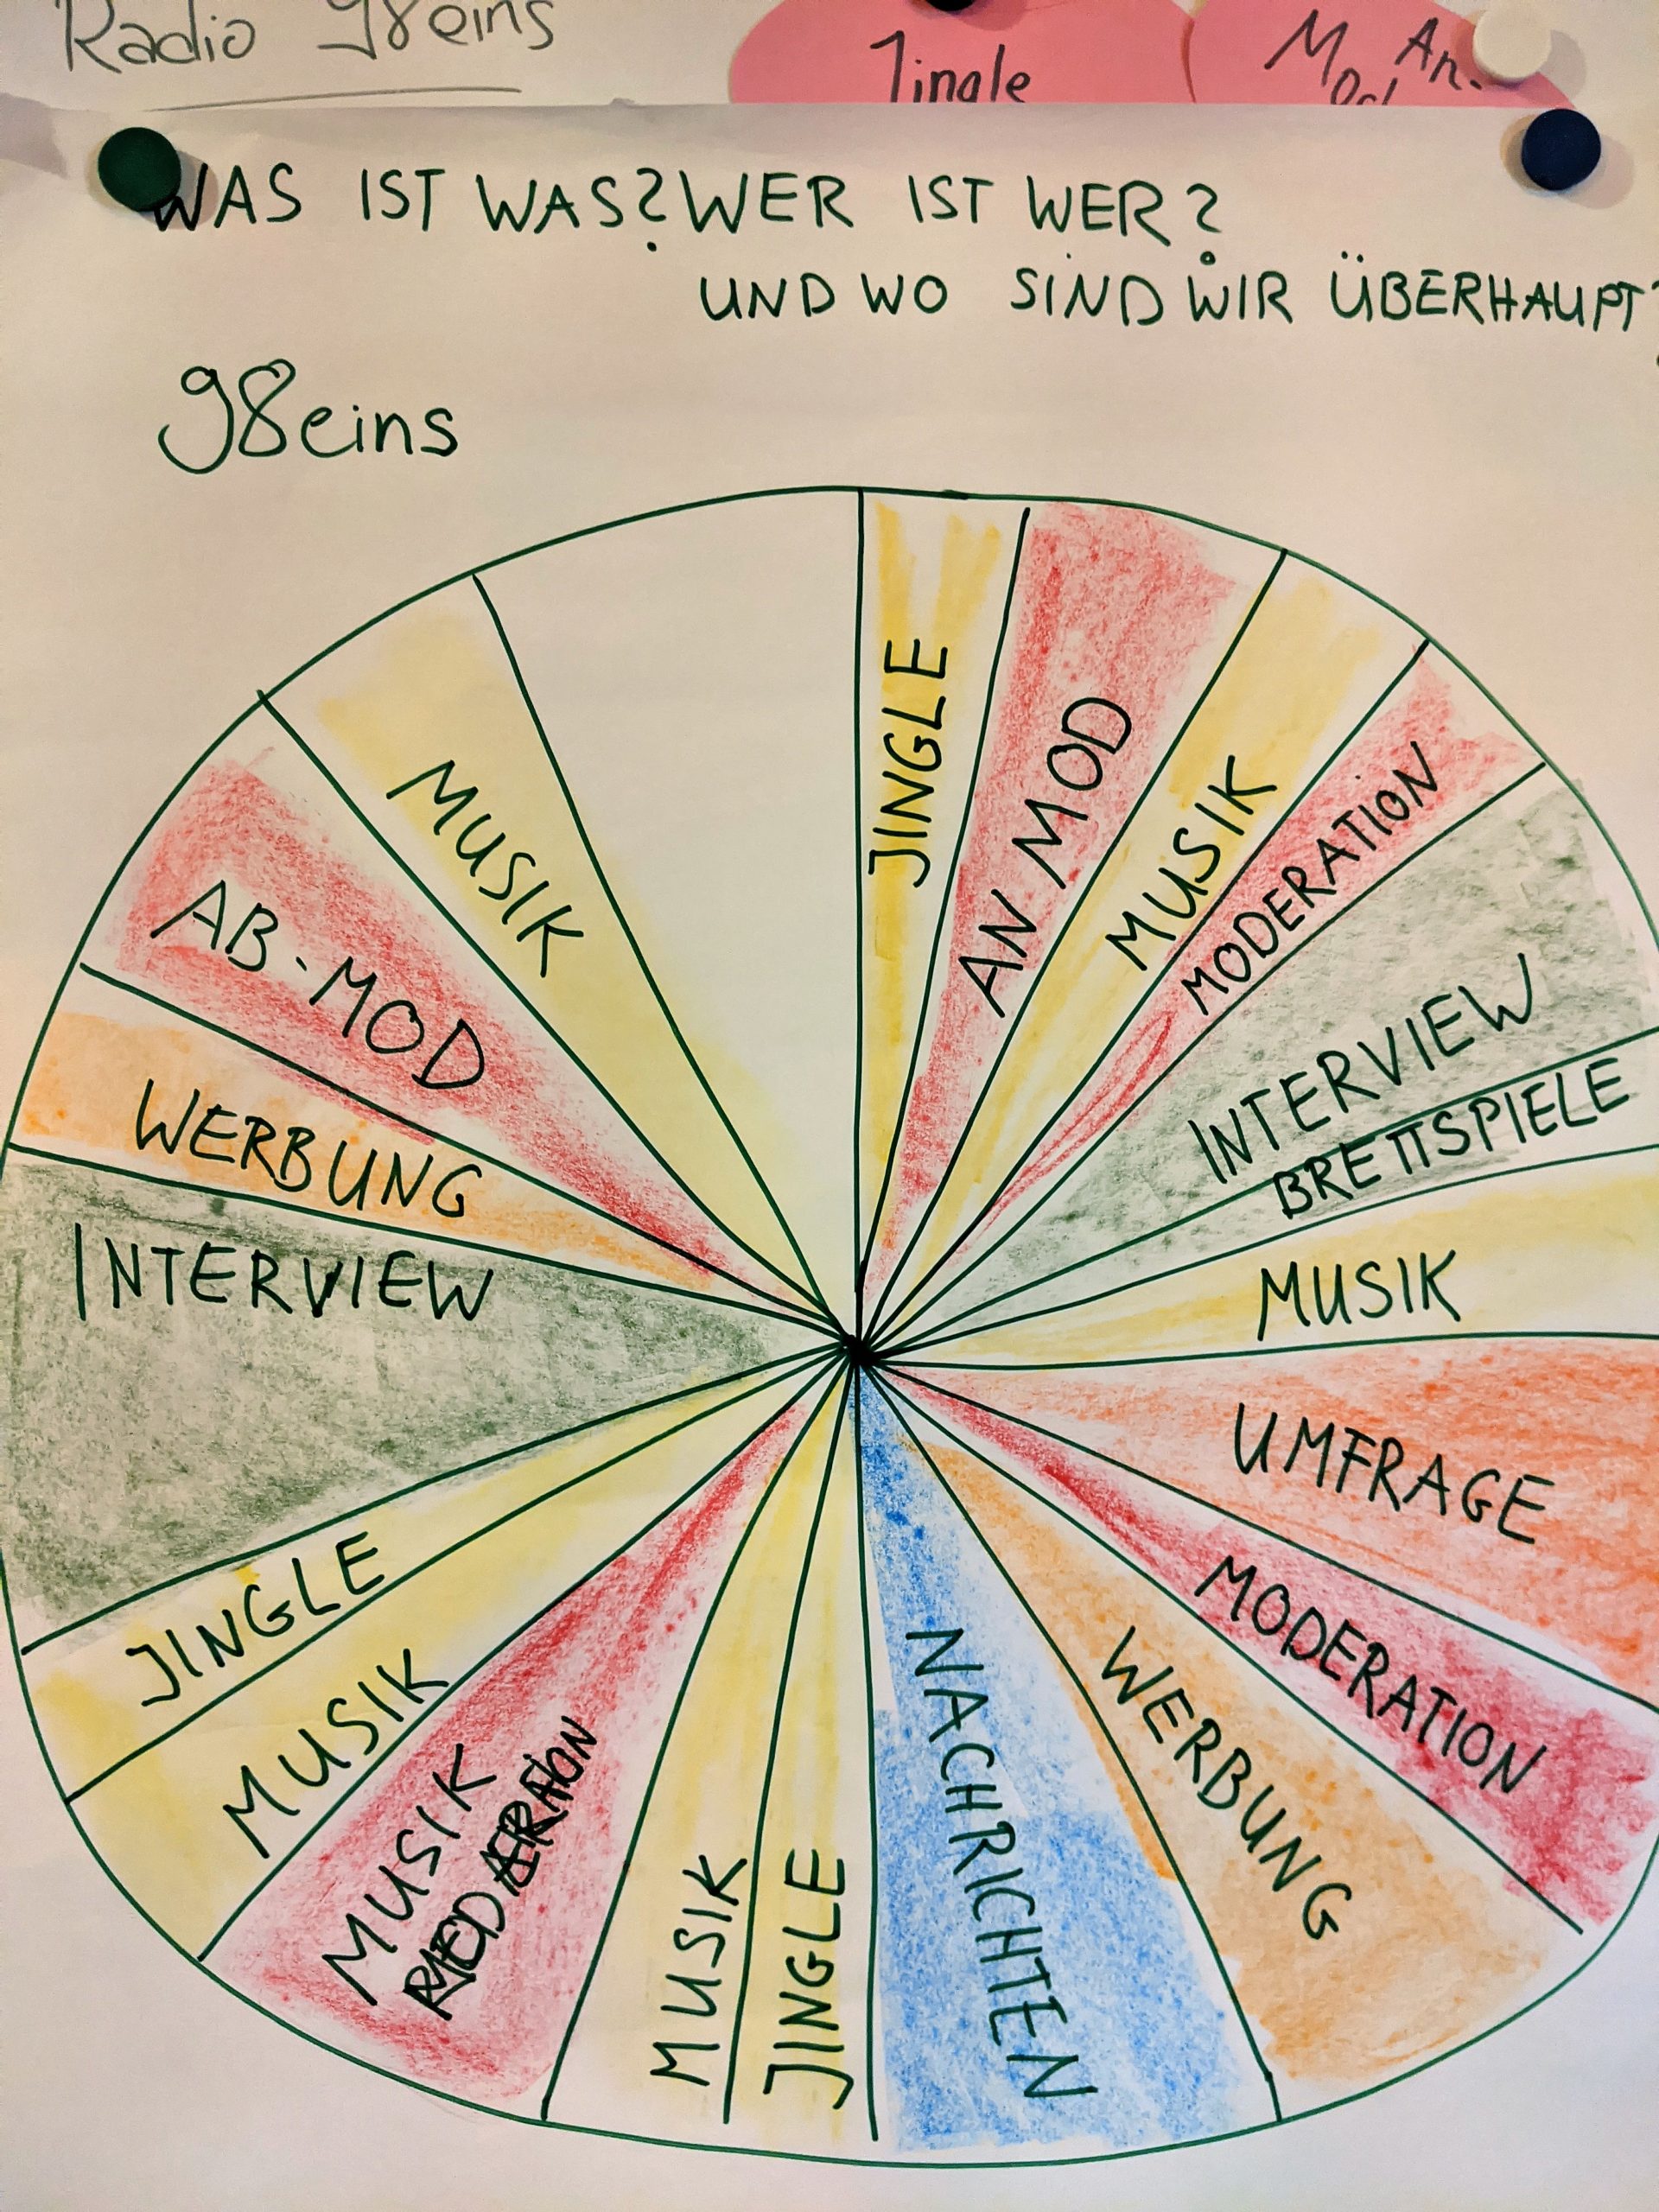 Radio 98eins
Jingle
An.
Mod
WAS IST WAS? WER IST WER?
UND WO SIND WIR ÜBERHAUPT?
98eins
JINGLE
AN MOD
MUSIK
MODERATION
INTERVIEW
BRETTSPIELE
MUSIK
UMFRAGE
MODERATION
WERBUNG
NACHRICHTEN
JINGLE
MUSIK
MUSIK
MUSIK
JINGLE
INTERVIEW
WERBUNG
AB-MOD
MUSIK